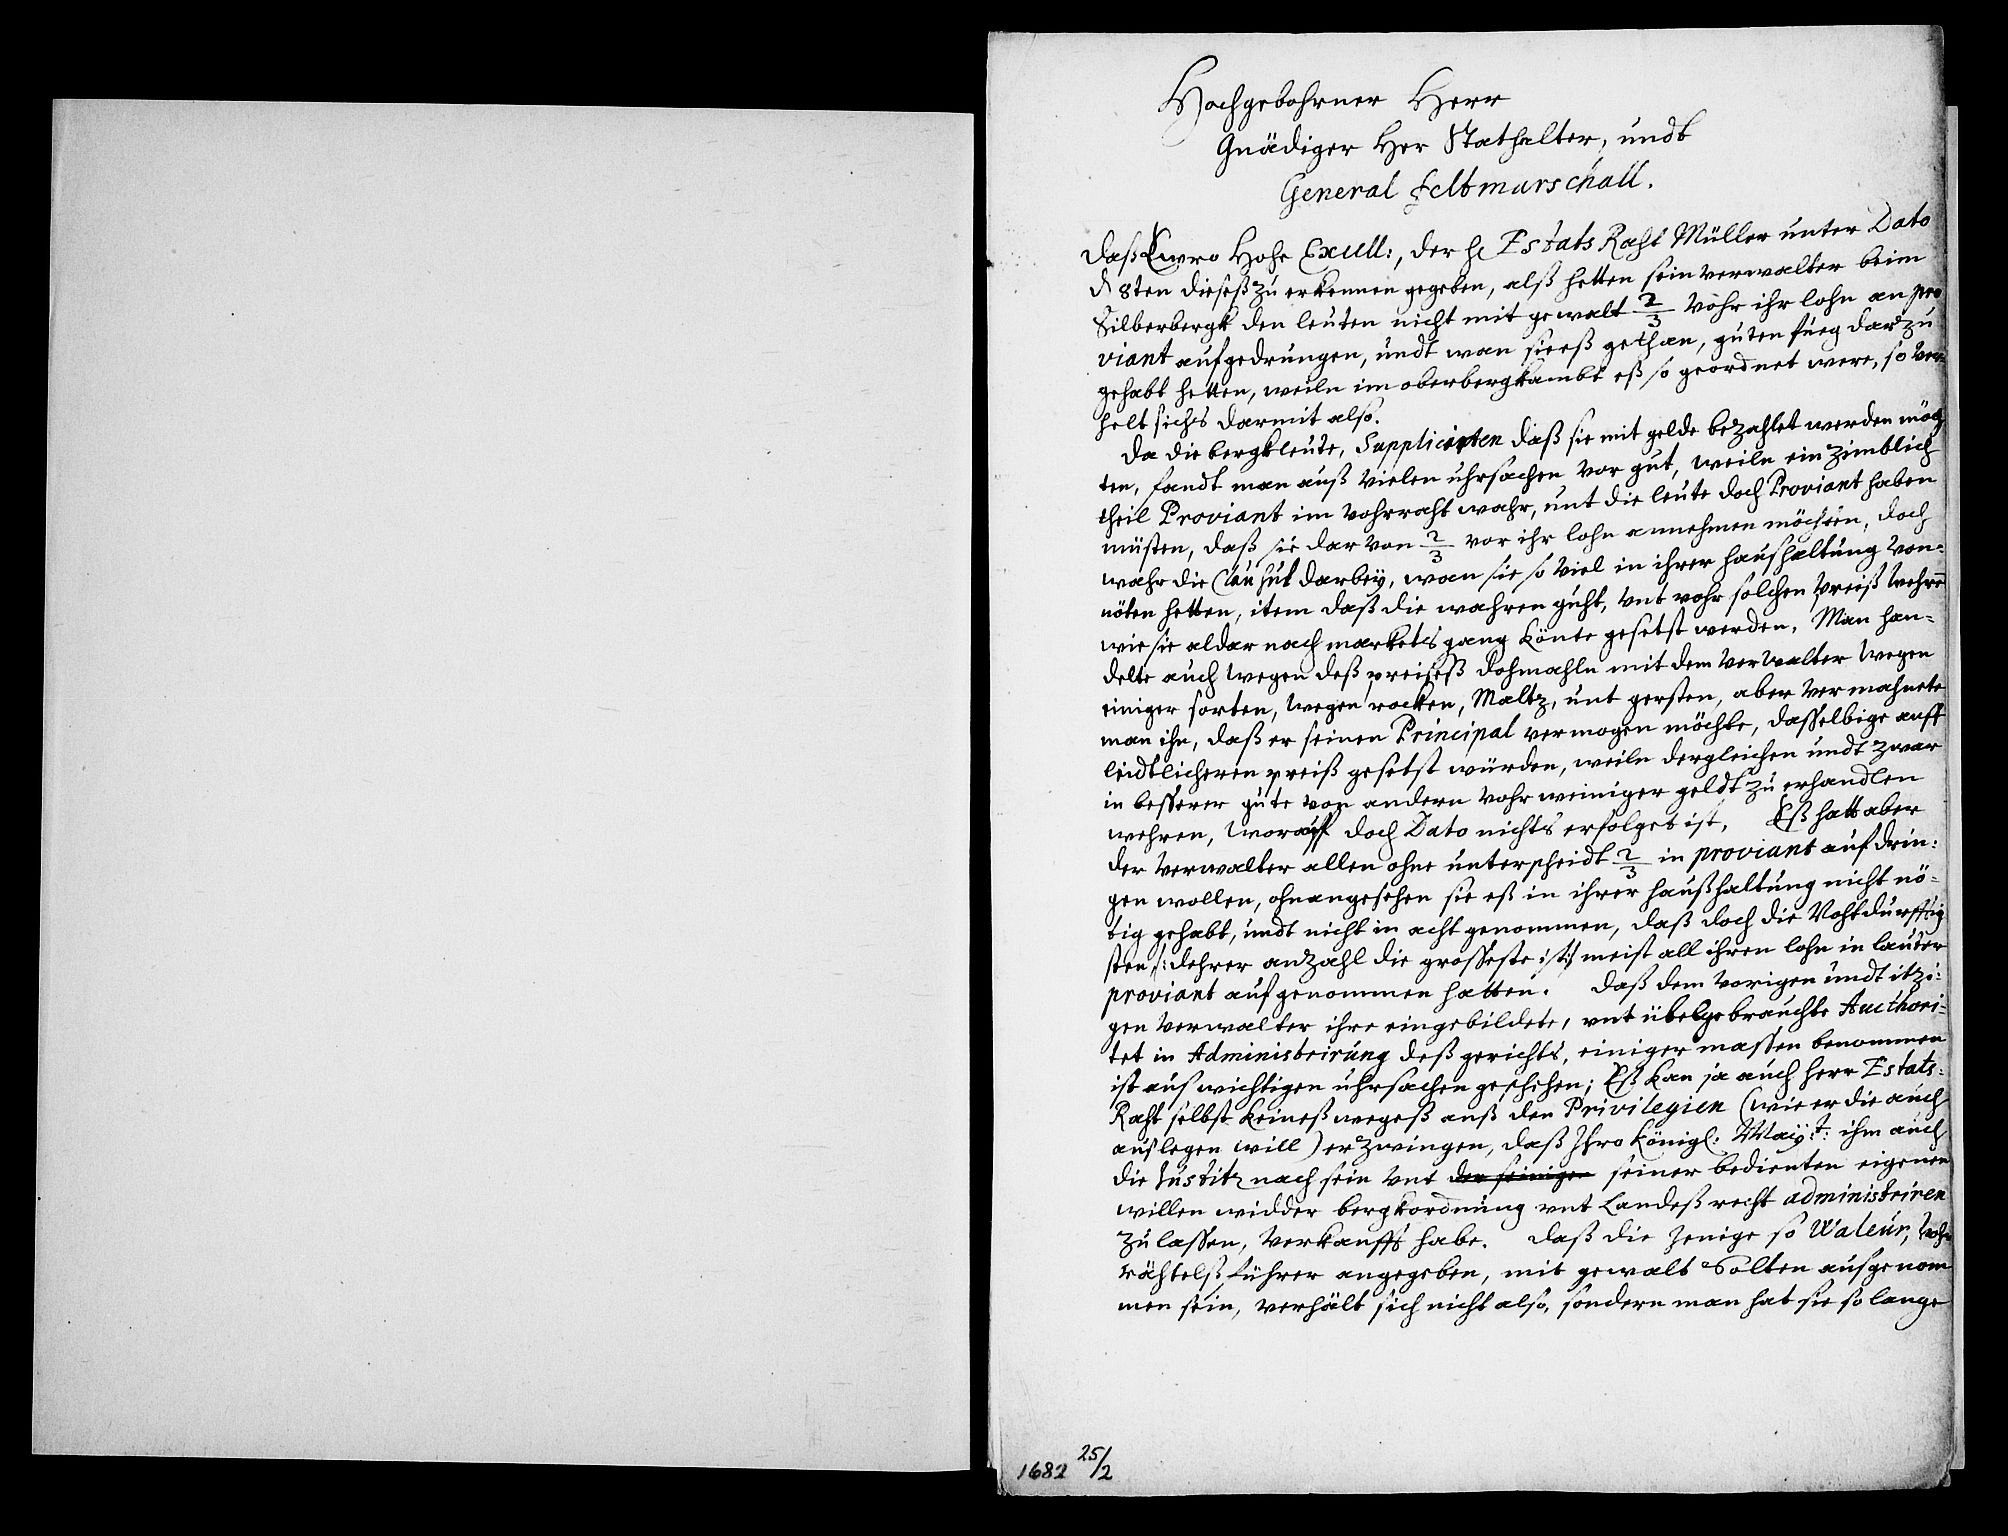 Hochgebohrner Herr
Gnädiger Her Stathalter, undt
General Feltmarschall.
Daß Ewro Hohe Excell:, der H Estats Raht Müller unter Dato
d 8ten dieseß zu erkennen gegeben, alß hetten sein verwalter beim
Silberbergk den leuten nicht mit gewalt 2/3 vohr ihr lohn an pro
viant aufgedrungen, undt wan sie eß gethan, guten fueg darzu
gehabt hetten, weiln im oberbergkambt eß so geordnet were, so ver=
helt sichs darmit also.
Da die bergkleute, Supplicirten daß sie mit gelde bezahlet werden möch
ten, fandt man auß vielen uhrsachen vor gut, weiln ein zimblich
theil Proviant im vohrraht wahr, unt die leute doch Proviant haben
müsten, daß sie dar von 2/3 vor ihr lohn annehmen möchten, doch
wahr die Clausul darbey, wan sie so viel in ihrer haushaltung von=
nöten hetten, item daß die wahren guht, unt vohr solchen preiß wehren
wie sie aldar nach markets gang könte gesetst werden. Man han=
delte auch wegen deß preiseß dohmahln mit dem verwalter wegen
einiger sorten, wegen rocken, Maltz, unt gersten, aber vermahnete
man ihn, daß er seinen Principal vermogen möchte, dasselbige auff
leidtlicheren preiß gesetst würden, weiln dergleichen undt zwar
in besserer güte von andern vohr weiniger geldt zu erhandlen
wehren, worauff doch Dato nichts erfolget ist. Eß hatt aber
der verwalter allen ohne unterscheidt 2/3 in proviant aufdrin=
gen wollen, ohnangesehen sie eß in ihrer haußhaltung nicht nö=
tig gehabt, undt nicht in acht genommen, daß doch die Nohtdurfftig
sten /: dehrer anzahl die grosseste ist :/ meist all ihren lohn in lauter
proviant aufgenommen hatten. Daß dem vorigen undt itzi=
gen verwalter ihre eingebildete, unt übelgebrauchte Authori=
tet in Administrirung deß gerichts, einiger massen benommen
ist aus wichtigen uhrsachen geschehen; Eß kan ja auch herr Estats=
Raht selbst keineßwegeß auß den Privilegien (wie er die auch
auslegen will) erzwingen, daß Ihro Königl: Mayt: ihm auch
die Justitz nach sein unt der seinigen seiner bedienten eigenen
willen widder bergkordnung unt Landeßrecht administriren
zu lassen, verkaufft habe. Daß die jenige so Waleur,
rähtelßführer angegeben, mit gewalt Solten ausgenom
men sein, verhält sich nicht also, sondern man hat sie so lange
1682 25/2